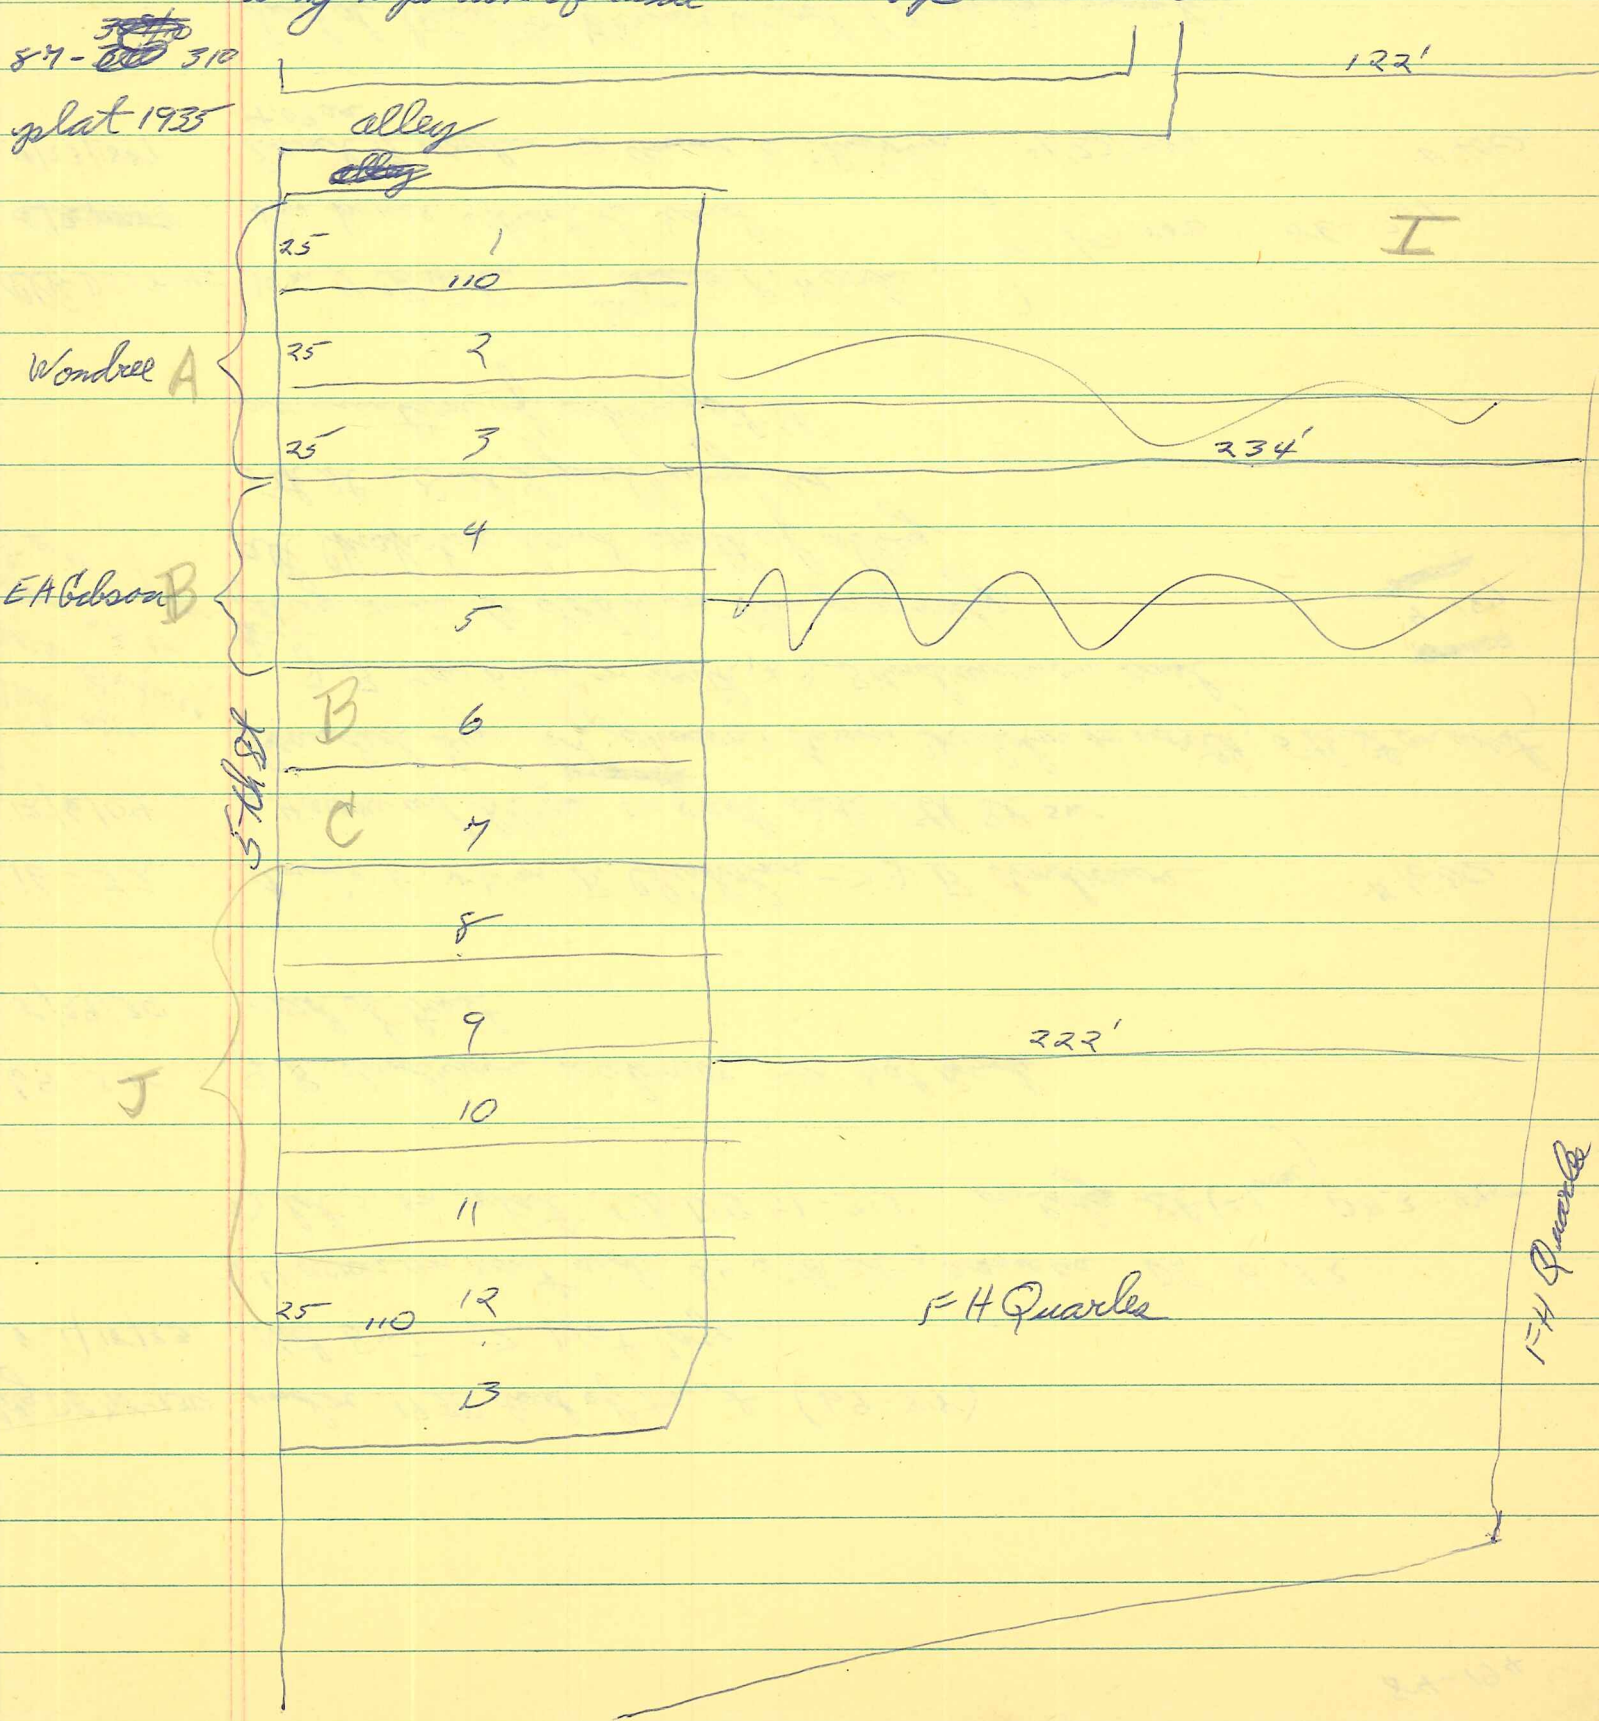 87- 310
122'
plat 1935
alley
alley
I
25 1
110
Wondree A
25 2
25 3
234'
4
E A Gibson B
5
B 6
5th St
C 7
8
9
222'
J
10
11
25 110 12
F H Quarles
F H Quarles
13